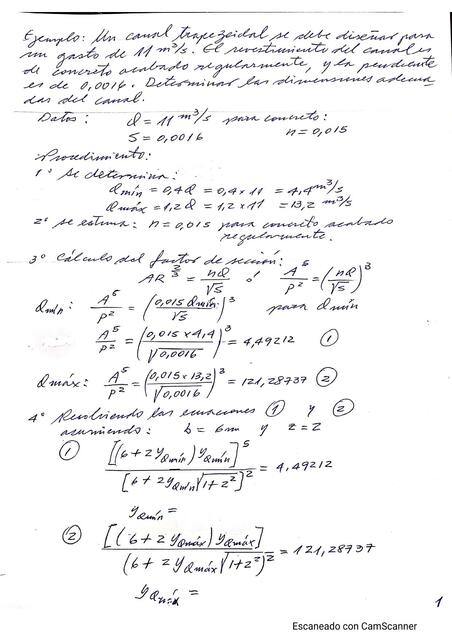 Ejemplo: Un canal trapezoidal se debe diseñar para
un gasto de 11 m³/s. El revestimiento del canal es
de concreto acabado regularmente, y la pendiente
es de 0,0016. Determinar las dimensiones adecua-
das del canal.
Datos: Q = 11 m³/s para concreto:
S = 0,0016 n = 0,015
Procedimiento:
1° Se determina:
Qmín = 0,4Q = 0,4 x 11 = 4,4 m³/s
Qmáx = 1,2Q = 1,2 x 11 = 13,2 m³/s
2° se estima: n = 0,015 para concreto acabado
regularmente.
3° Cálculo del factor de sección:
AR^(2/3) = nQ/√S ó A⁵/P² = (nQ/√S)³
Qmín: A⁵/P² = (0,015 Qmín/√S)³ para Qmín
A⁵/P² = (0,015 x 4,4/√0,0016)³ = 4,49212 ①
Qmáx: A⁵/P² = (0,015 x 13,2/√0,0016)³ = 121,28737 ②
4° Resolviendo las ecuaciones ① y ②
asumiendo: b = 6m y z = 2
① [(6 + 2 yQmín) yQmín]⁵/[6 + 2 yQmín √(1+2²)]² = 4,49212
yQmín =
② [(6 + 2 yQmáx) yQmáx]/(6 + 2 yQmáx √(1+2²))² = 121,28737
yQmáx =
1
Escaneado con CamScanner